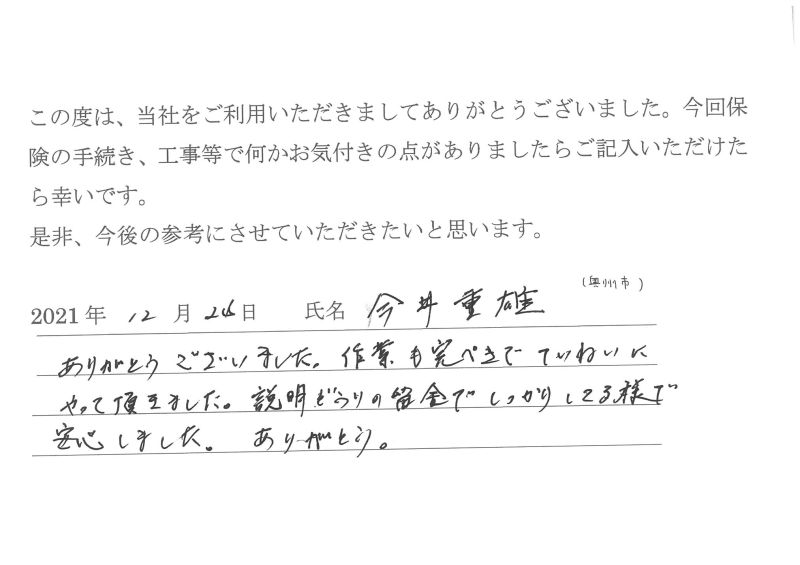 この度は、当社をご利用いただきましてありがとうございました。今回保
険の手続き、工事等で何かお気付きの点がありましたらご記入いただけた
ら幸いです。
是非、今後の参考にさせていただきたいと思います。
(奥州市)
2021年 12月 26日 氏名 今井重雄
ありがとうございました。作業も完ぺきでていねいに
やって頂きました。説明どうりの留金でしっかりしてる様で
安心しました。 ありがとう。